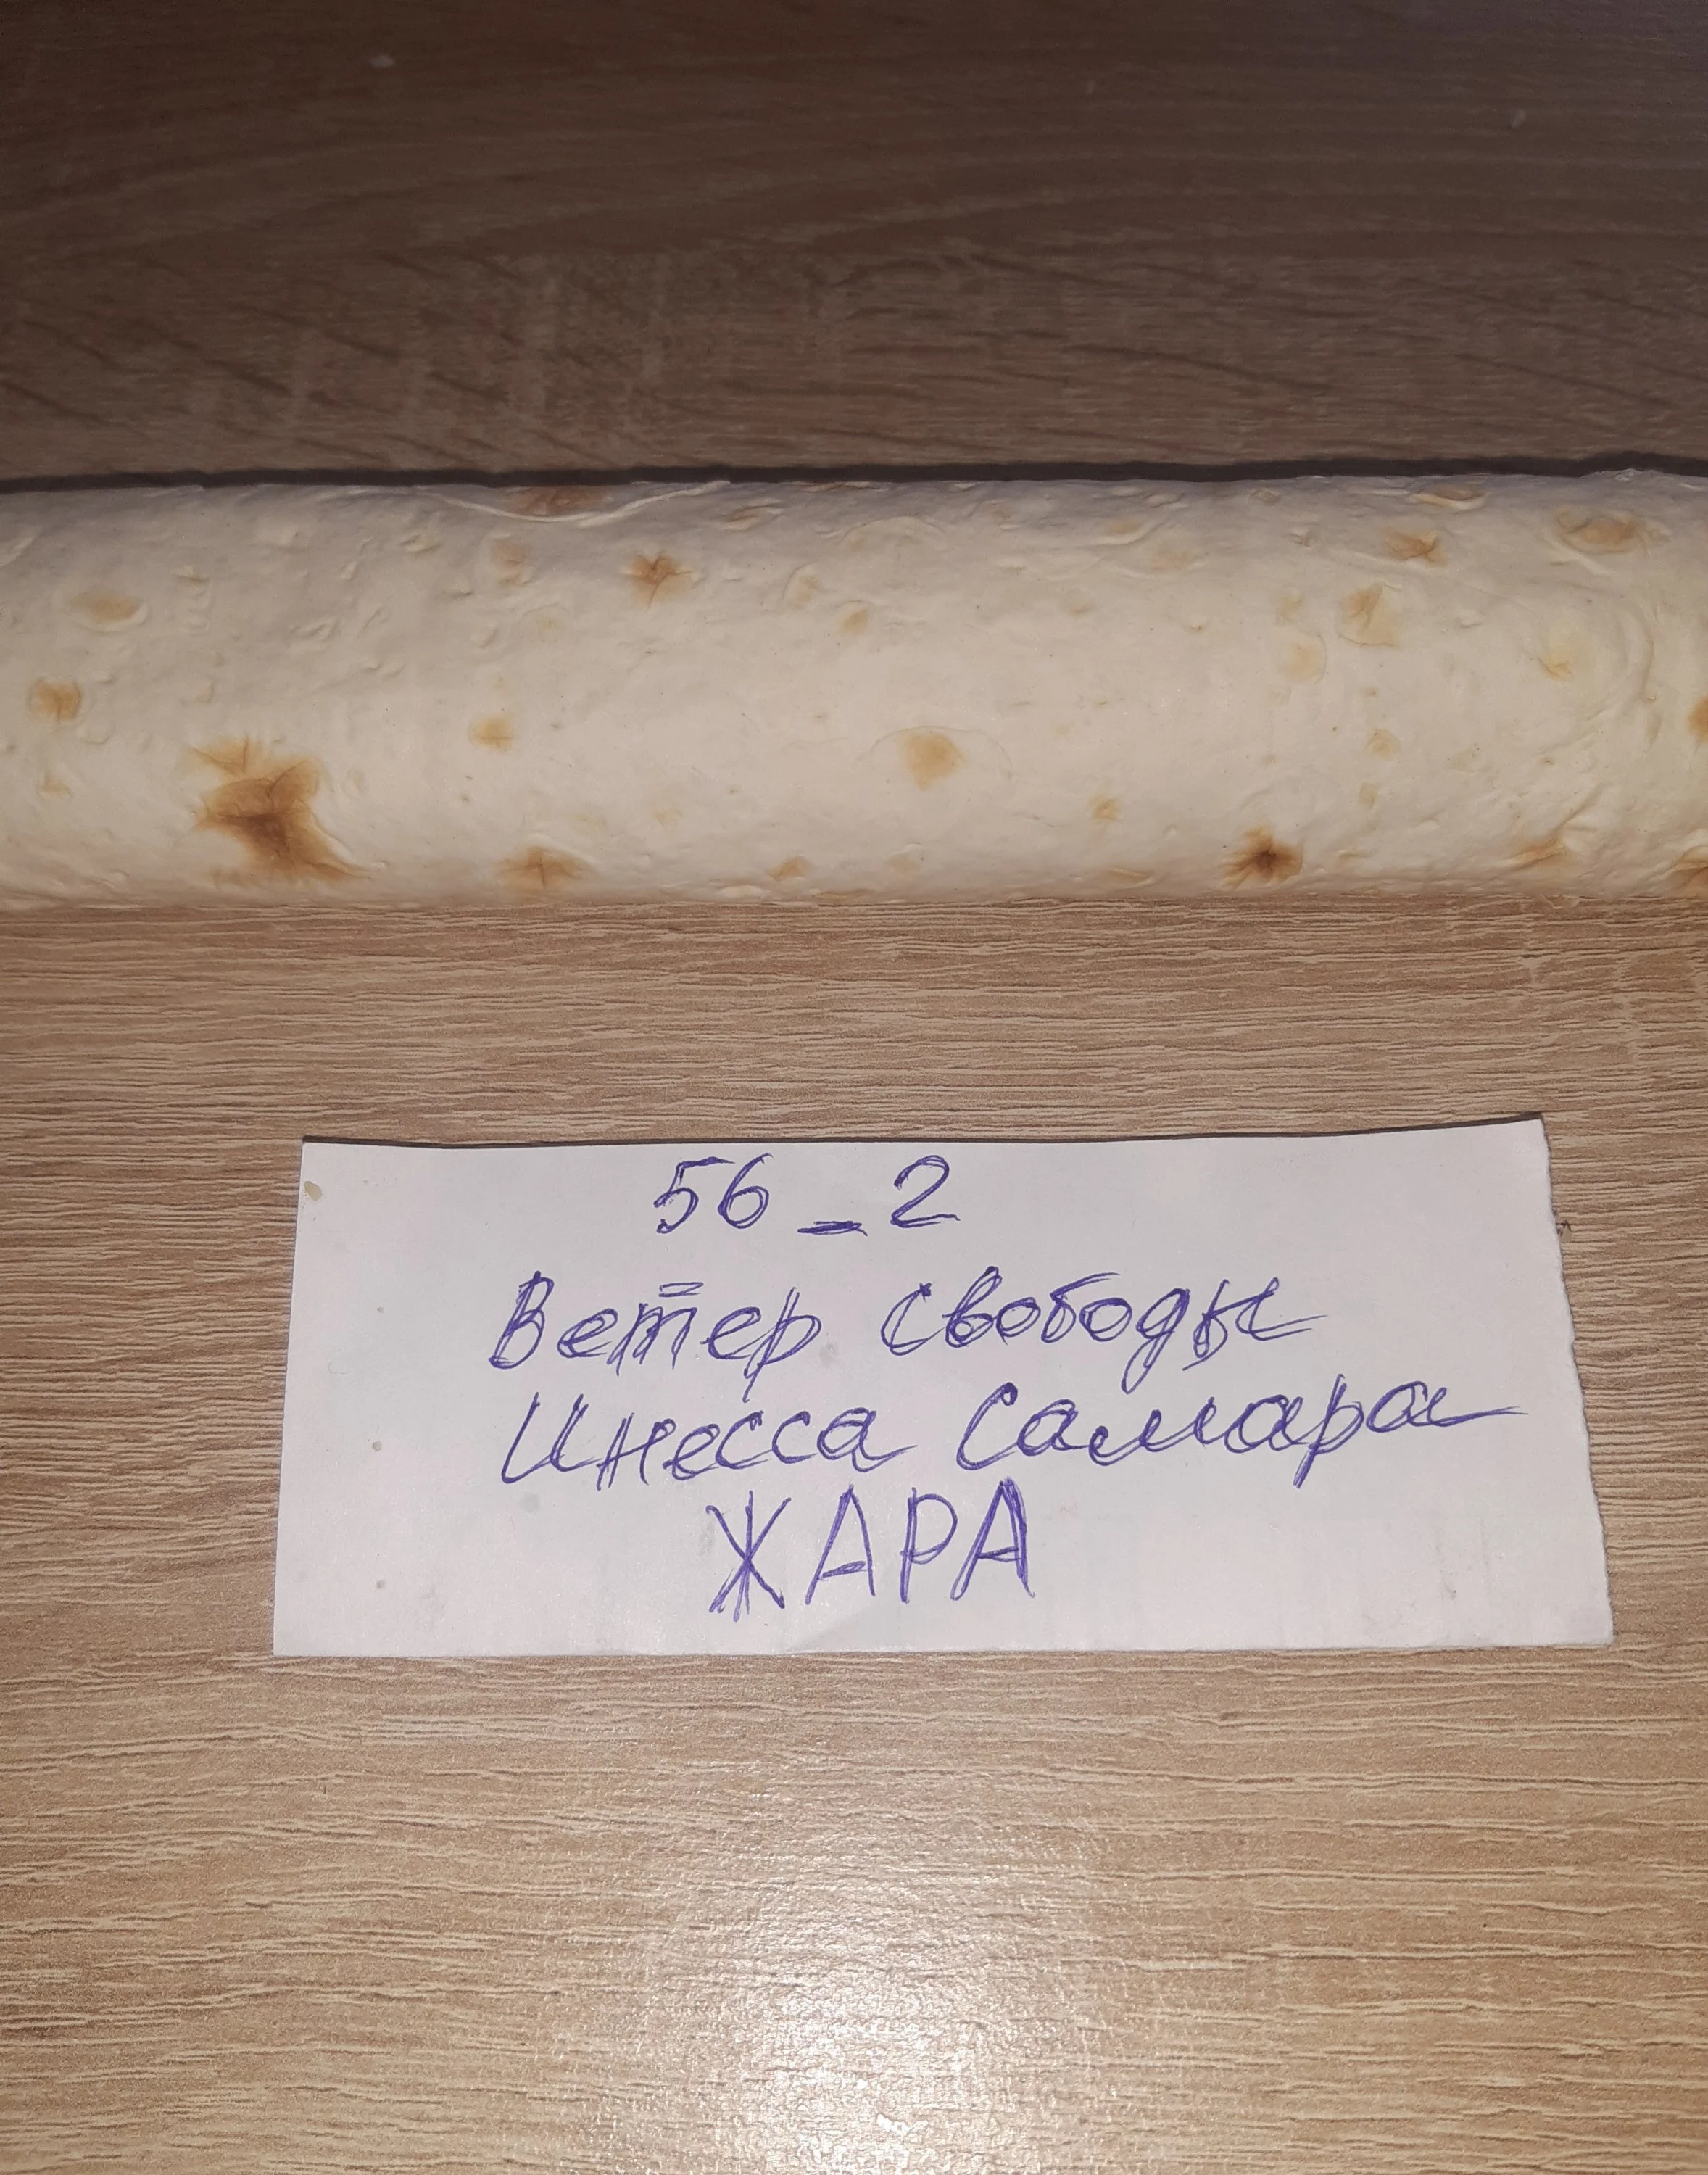 56_2
Ветер свободы
Инесса Самара
ЖАРА